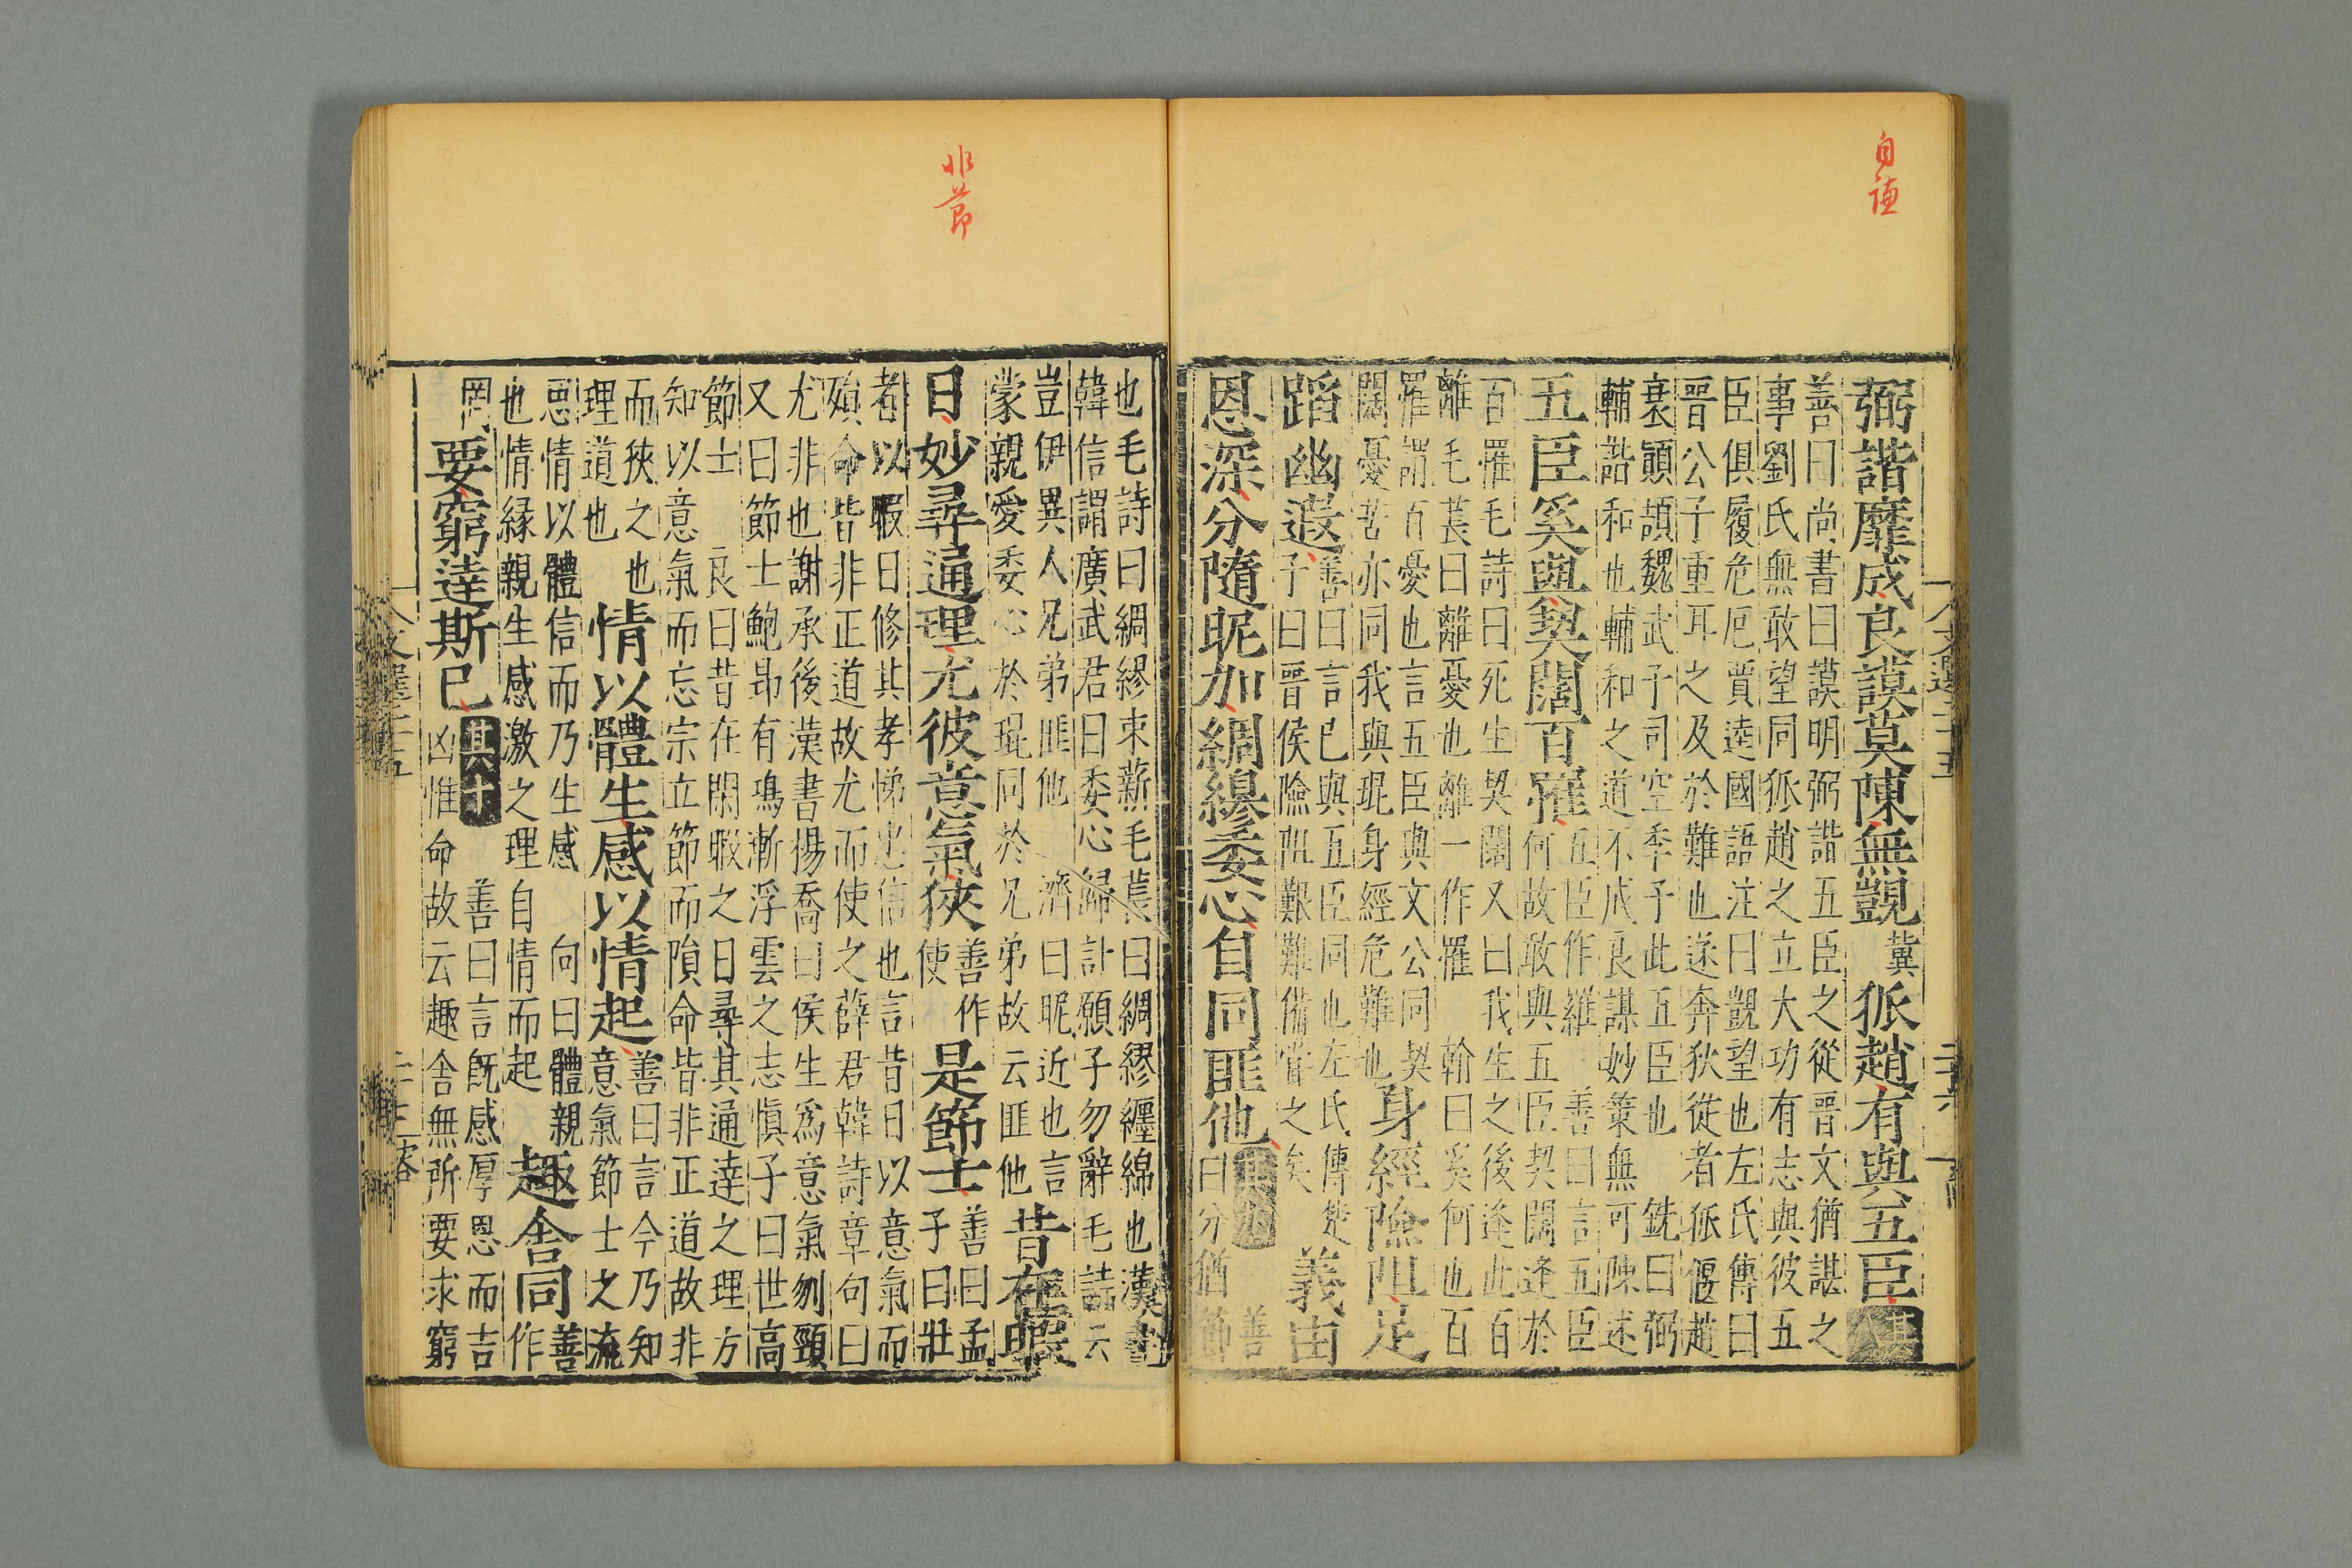 自謙
弼諧靡成良謨莫陳無覬冀狐趙有與五臣其八
善曰尚書曰謨明弼諧五臣之從晉文猶諶之
事劉氏無敢望同狐趙之立大功有志與彼五
臣俱履危厄賈逵國語注曰覬望也左氏傳曰
晉公子重耳之及於難也遂奔狄從者狐偃趙
衰顛頡魏武子司空季子此五臣也 銑曰弼
輔諧和也輔和之道不成良謀妙策無可陳述
五臣奚與契闊百罹五臣作羅 善曰言五臣
何故敢與五臣契闊逢於
百罹毛詩曰死生契闊又曰我生之後逢此百
離毛萇曰離憂也離一作罹 翰曰奚何也百
罹謂百憂也言五臣與文公同契
闊憂苦亦同我與琨身經危難也身經險阻足
蹈幽遐善曰言已與五臣同也左氏傳楚
子曰晉侯險阻艱難備嘗之矣義由
恩深分隨昵加綢繆委心自同匪他其九 善
曰分猶節
也毛詩曰綢繆束薪毛萇曰綢繆纏綿也漢書
韓信謂廣武君曰委心歸計願子勿辭毛詩云
豈伊異人兄弟匪他 濟曰昵近也言
蒙親愛委心於琨同於兄弟故云匪他昔在暇
日妙尋通理尤彼意氣狹善作使是節士善曰孟
子曰壯
者以暇日修其孝悌忠信也言昔日以意氣而
殞命皆非正道故尤而使之薛君韓詩章句曰
尤非也謝承後漢書楊喬曰侯生爲意氣刎頸
又曰節士鮑昂有鴻漸浮雲之志愼子曰世高
節士 良曰昔在閑暇之日尋其通達之理方
知以意氣而忘宗立節而隕命皆非正道故非
而狹之也
理道也情以體生感以情起善曰言今乃知
意氣節士之流
思情以體信而乃生感 向曰體親
也情緣親生感激之理自情而起趣舍同善
作
罔要窮達斯已其十 善曰言既感厚恩而吉
凶惟命故云趣舍無所要求窮
非節